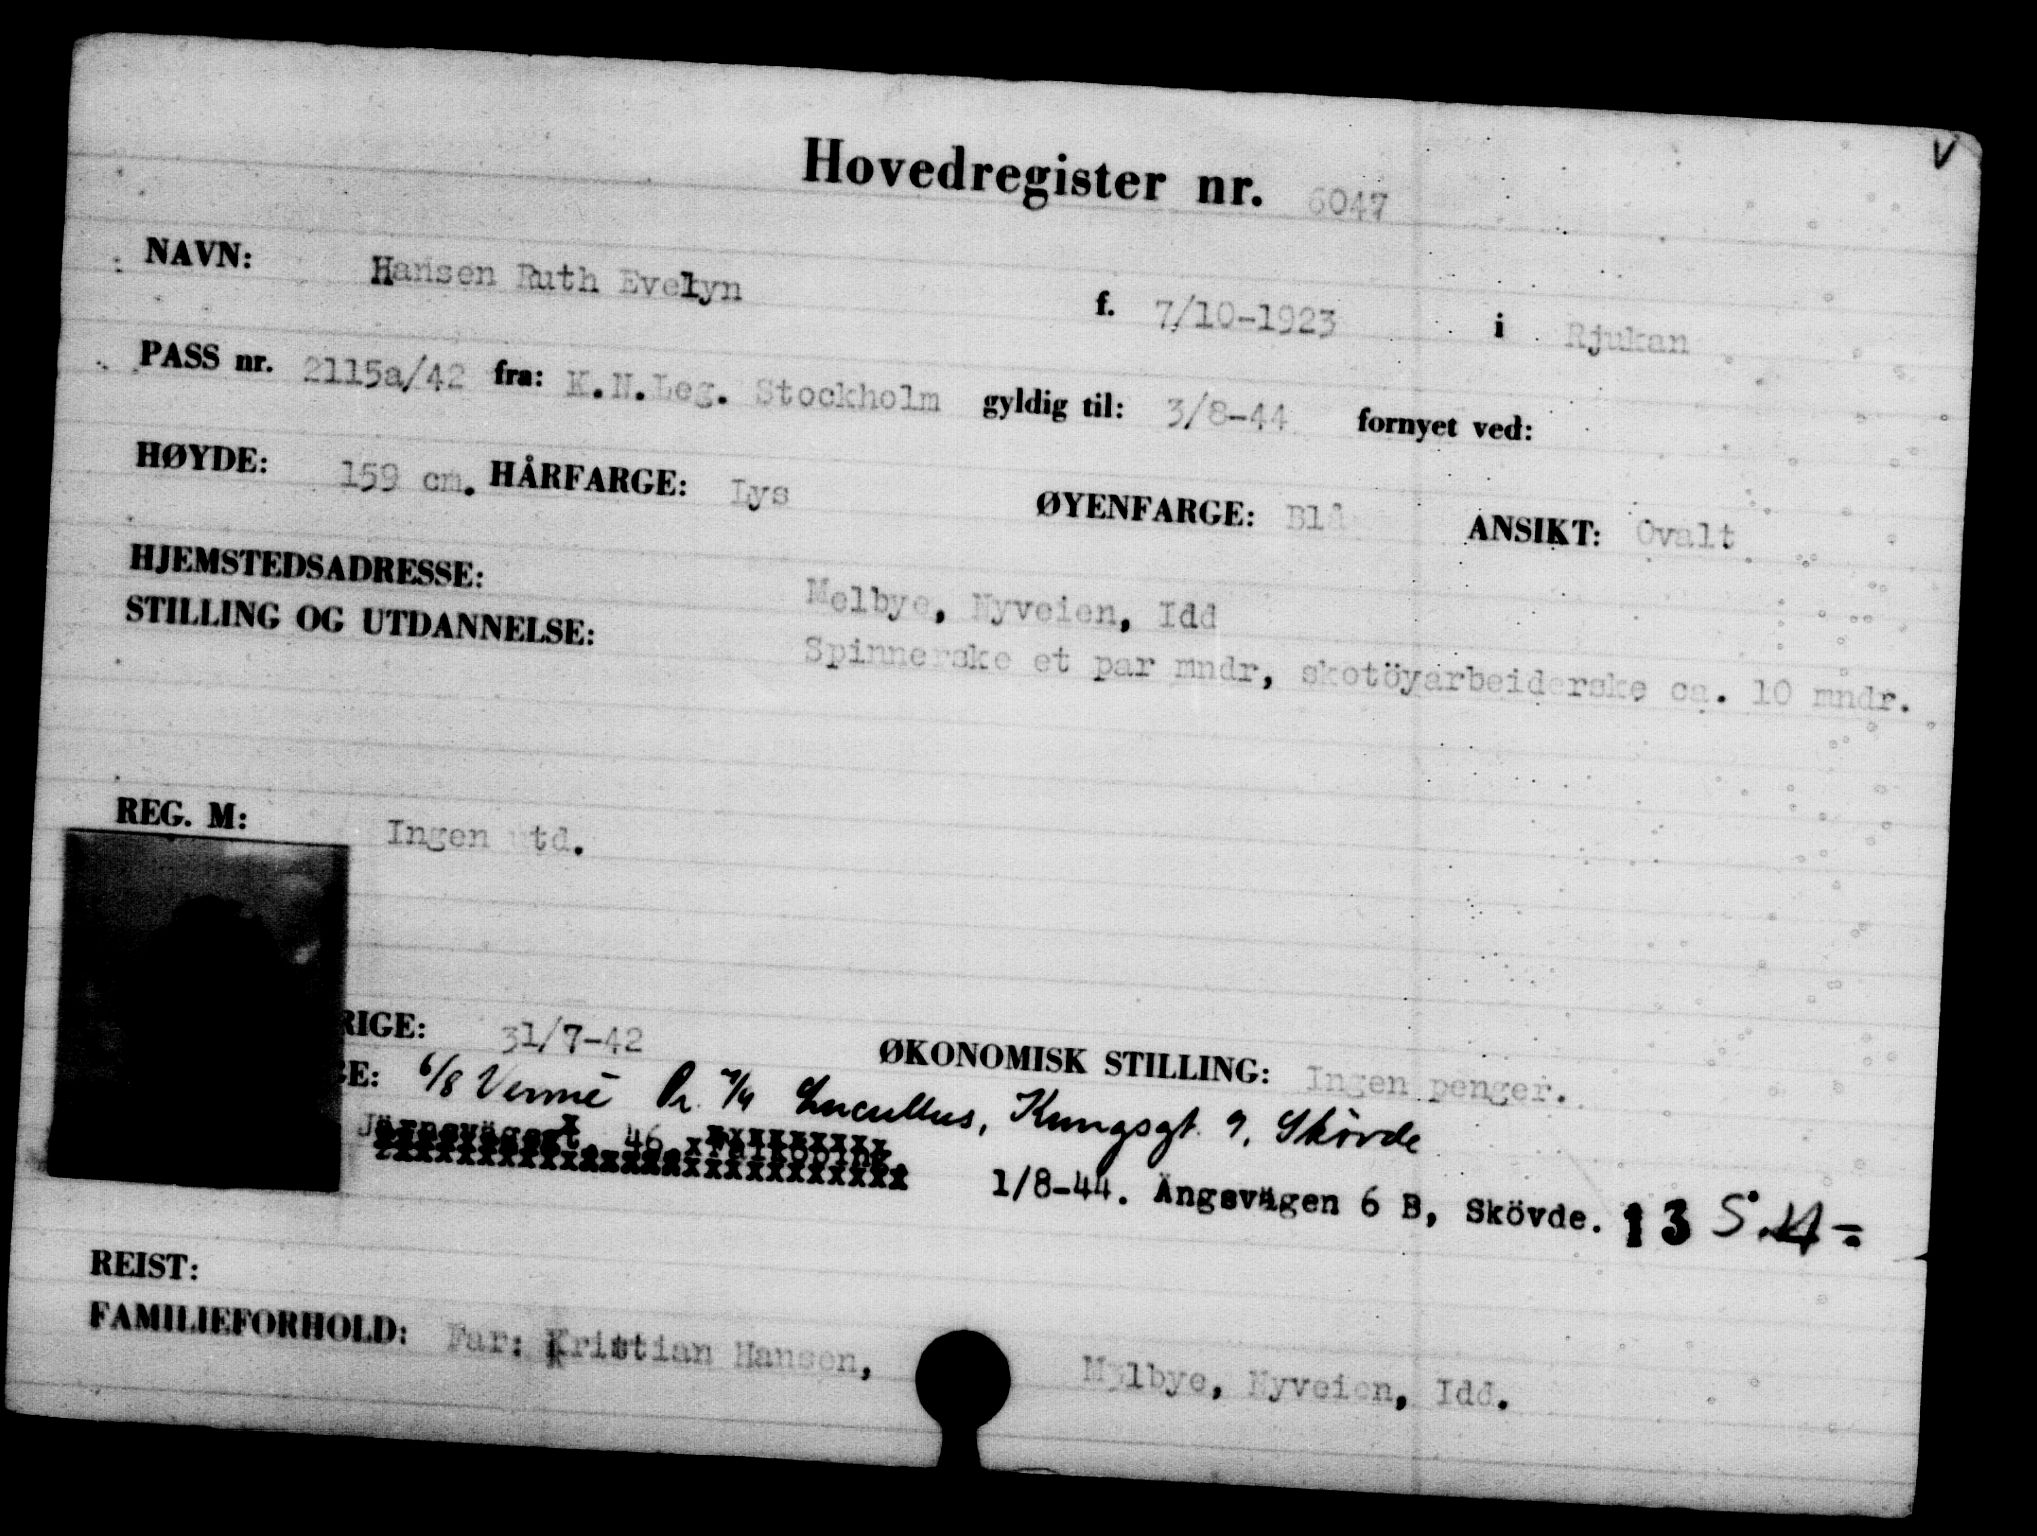 V
Hovedregister nr. 6047
NAVN: Hansen Ruth Evelyn f. 7/10-1923 i Rjukan
PASS nr. 2115a/42 fra: K.N.Leg. Stockholm gyldig til: 3/8-44 fornyet ved:
HØYDE: 159 cm. HÅRFARGE: Lys ØYENFARGE: Blå ANSIKT: Ovalt
HJEMSTEDSADRESSE: Melbye, Nyveien, Idd
STILLING OG UTDANNELSE: Spinnerske et par mndr, skotöyarbeiderske ca. 10 mndr.
REG. M: Ingen utd.
RIGE: 31/7-42 ØKONOMISK STILLING: Ingen penger.
GE: 6/8 Lucullus, Kungsgt. 9, Skövde
46
1/8-44. Ängsvägen 6 B, Skövde. 13
REIST:
FAMILIEFORHOLD: Far: Kristian Hansen, Melbye, Nyveien, Idd.